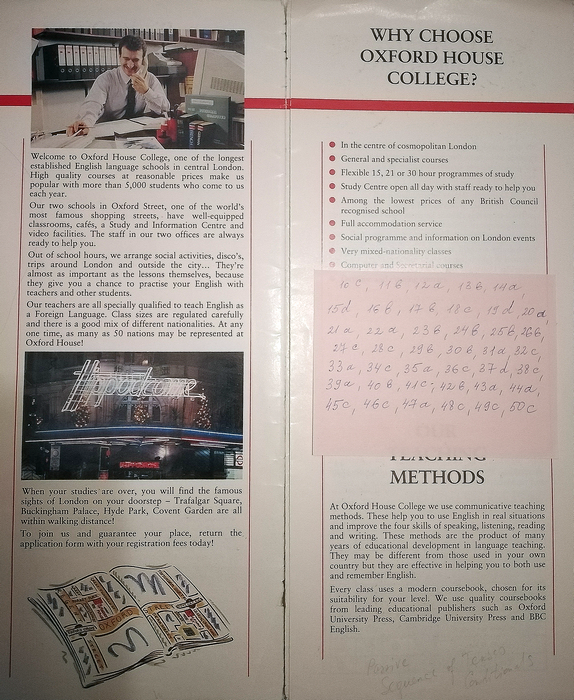 Welcome to Oxford House College, one of the longest
established English language schools in central London.
High quality courses at reasonable prices make us
popular with more than 5,000 students who come to us
each year.
Our two schools in Oxford Street, one of the world's
most famous shopping streets, have well-equipped
classrooms, cafés, a Study and Information Centre and
video facilities. The staff in our two offices are always
ready to help you.
Out of school hours, we arrange social activities, disco's,
trips around London and outside the city... They're
almost as important as the lessons themselves, because
they give you a chance to practise your English with
teachers and other students.
Our teachers are all specially qualified to teach English as
a Foreign Language. Class sizes are regulated carefully
and there is a good mix of different nationalities. At any
one time, as many as 50 nations may be represented at
Oxford House!
Hippodrome
When your studies are over, you will find the famous
sights of London on your doorstep – Trafalgar Square,
Buckingham Palace, Hyde Park, Covent Garden are all
within walking distance!
To join us and guarantee your place, return the
application form with your registration fees today!
OXFORD
STREET
WHY CHOOSE
OXFORD HOUSE
COLLEGE?
In the centre of cosmopolitan London
General and specialist courses
Flexible 15, 21 or 30 hour programmes of study
Study Centre open all day with staff ready to help you
Among the lowest prices of any British Council
recognised school
Full accommodation service
Social programme and information on London events
Very mixed-nationality classes
Computer and Secretarial courses
10c, 11b, 12a, 13b, 14a,
15d, 16b, 17b, 18c, 19d, 20d,
21a, 22a, 23b, 24b, 25b, 26b,
27c, 28c, 29b, 30b, 31a, 32c,
33a, 34c, 35a, 36c, 37d, 38c,
39a, 40b, 41c, 42b, 43a, 44d,
45c, 46c, 47a, 48c, 49c, 50c
OUR
TEACHING
METHODS
At Oxford House College we use communicative teaching
methods. These help you to use English in real situations
and improve the four skills of speaking, listening, reading
and writing. These methods are the product of many
years of educational development in language teaching.
They may be different from those used in your own
country but they are effective in helping you to both use
and remember English.
Every class uses a modern coursebook, chosen for its
suitability for your level. We use quality coursebooks
from leading educational publishers such as Oxford
University Press, Cambridge University Press and BBC
English.
Passive
Sequence of Tenses
Conditionals